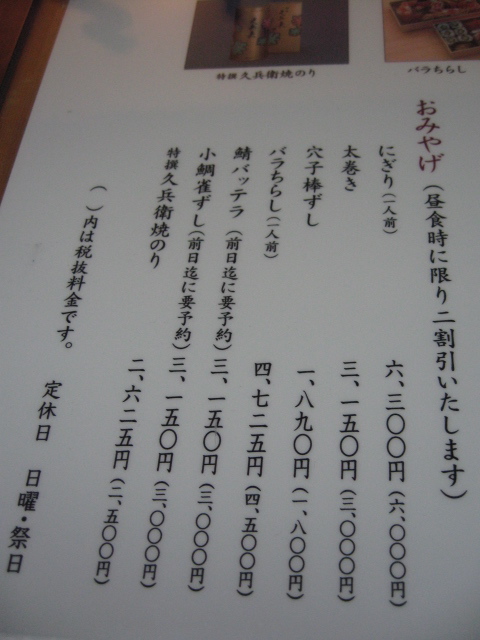 特撰 久兵衛焼のり
バラちらし
おみやげ（昼食時に限り二割引いたします）
にぎり（一人前） 六、三〇〇円（六、〇〇〇円）
太巻き 三、一五〇円（三、〇〇〇円）
穴子棒ずし 一、八九〇円（一、八〇〇円）
バラちらし（一人前） 四、七二五円（四、五〇〇円）
鯖バッテラ（前日迄に要予約） 三、一五〇円（三、〇〇〇円）
小鯛雀ずし（前日迄に要予約） 三、一五〇円（三、〇〇〇円）
特撰 久兵衛焼のり 二、六二五円（二、五〇〇円）
（ ）内は税抜料金です。
定休日 日曜・祭日